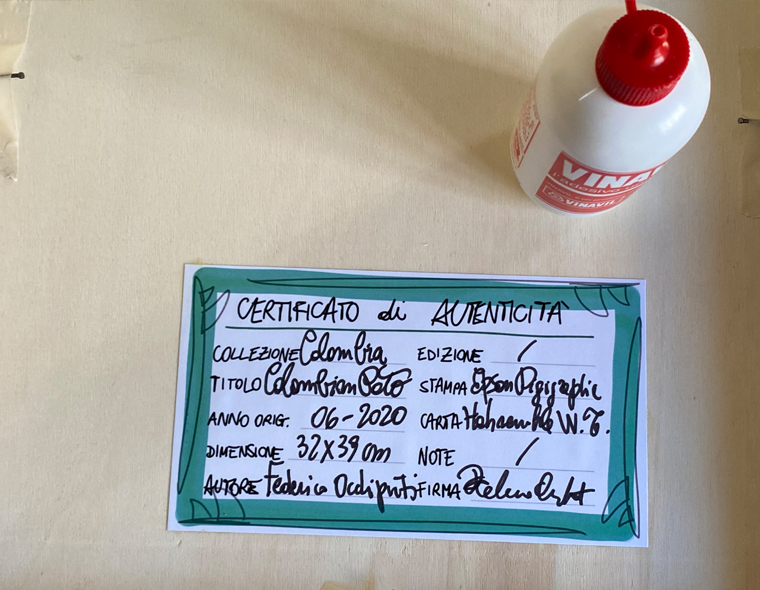 VINA
L'adesivo
VINAVIL
CERTIFICATO di AUTENTICITÀ
COLLEZIONE Colombia EDIZIONE /
TITOLO Colombian STAMPA Epson Digigraphie
ANNO ORIG. 06-2020 CARTA W.T.
DIMENSIONE 32x39 cm NOTE /
AUTORE Federico Occhipinti FIRMA